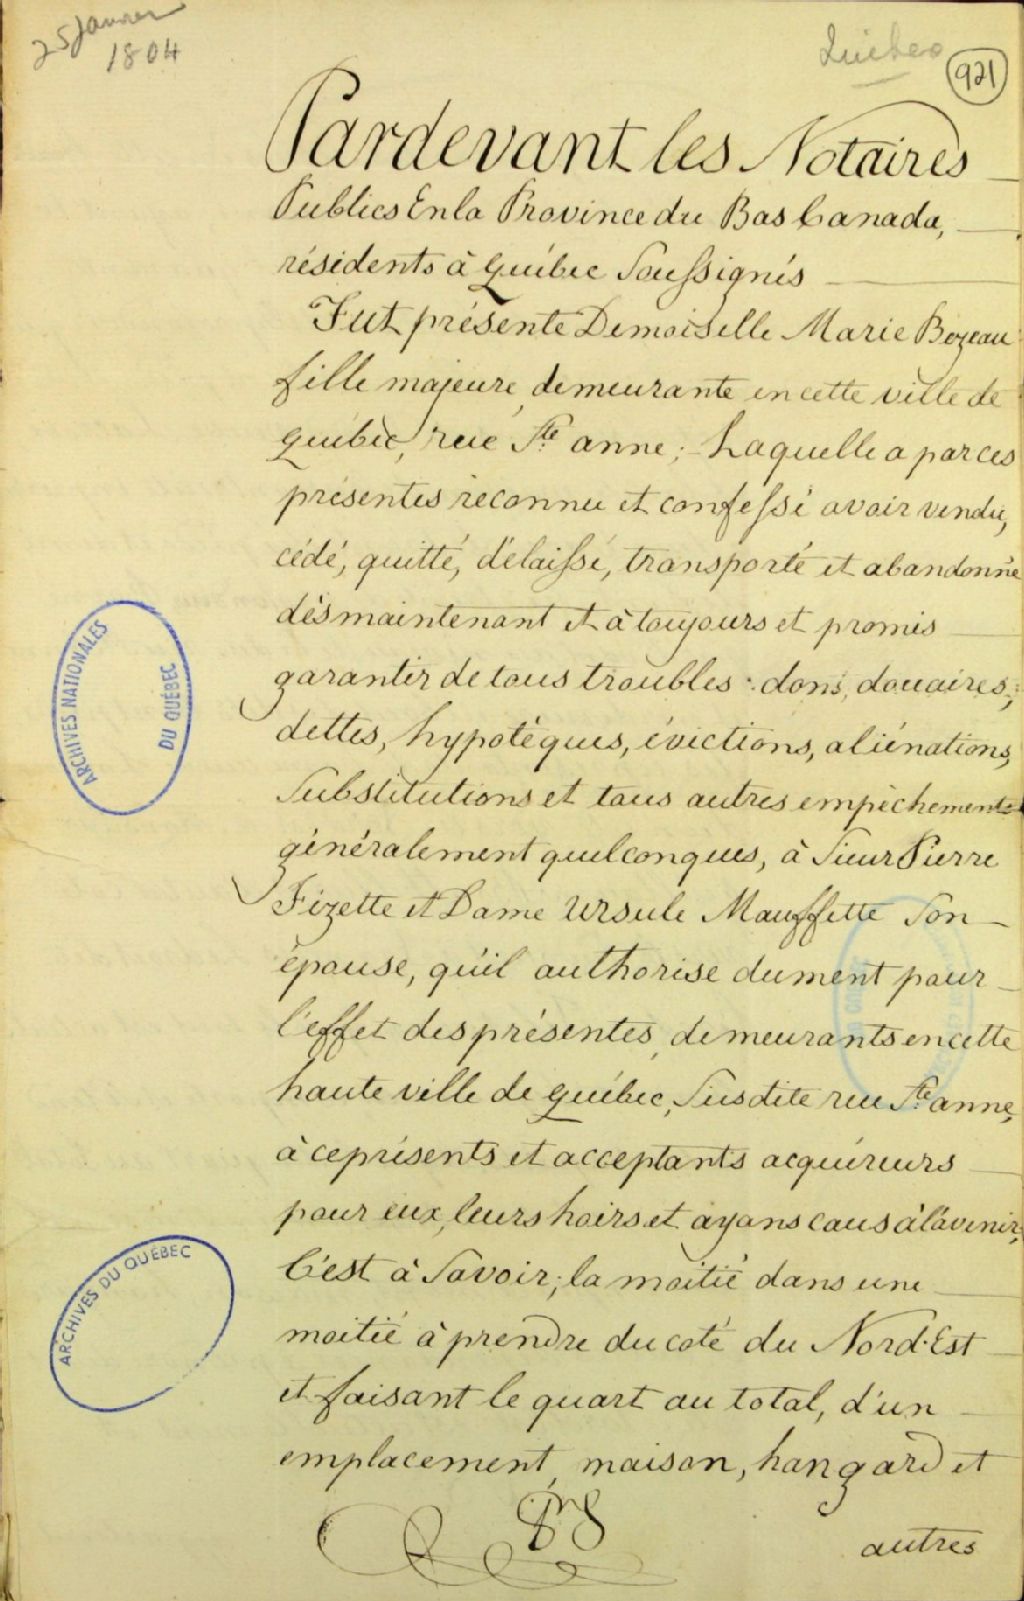 25 Janvier
1804
Québec
921
Pardevant les Notaires
Publics En la Province du Bas Canada,
résidents à Québec Soussignés
Fut présente Demoiselle Marie Bezeau
fille majeure, demeurante en cette ville de
Québec, rue Ste anne; Laquelle a par ces
présentes reconnu et confessé avoir vendu,
cédé, quitté, délaissé, transporté et abandonné
dès maintenant et à toujours et promis
garantir de tous troubles: dons, douaires,
dettes, hypotéques, évictions, aliénations,
Substitutions et tous autres empêchements
généralement quelconques, à Sieur Pierre
Fizette et Dame Ursule Mauffette Son
épouse, qu'il authorise dument pour
l'effet des présentes, demeurants en cette
haute ville de Québec, Susdite rue Ste anne,
à ce présents et acceptants acquéreurs
pour eux, leurs hoirs et ayans caus à l'avenir,
C'est à Savoir; la moitié dans une
moitié à prendre du coté du Nord-Est
et faisant le quart au total, d'un
emplacement, maison, hangard et
autres
ARCHIVES NATIONALES
DU QUÉBEC
ARCHIVES DU QUÉBEC